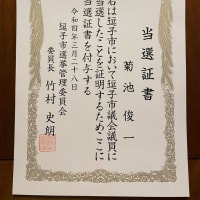 当選証書
菊池俊一
右は逗子市において逗子市議会議員に
当選したことを証明するためここに
当選証書を付与する
令和四年三月二十八日
逗子市選挙管理委員会
委員長 竹村史朗